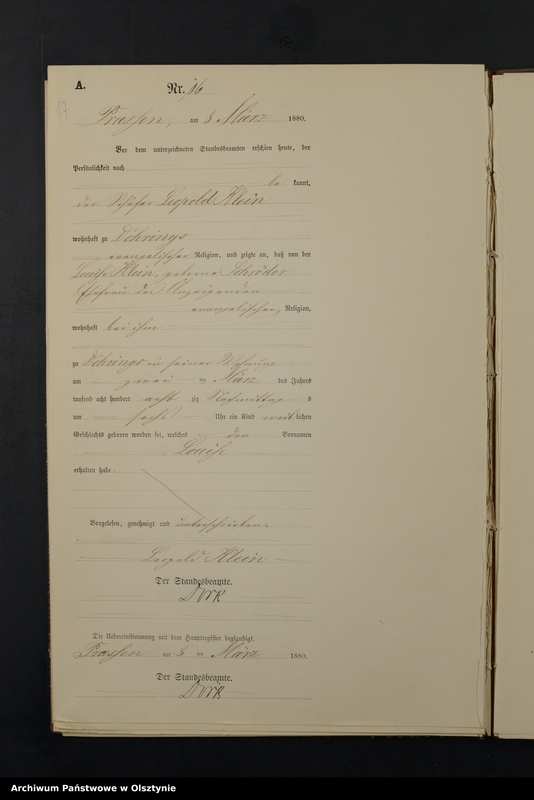 A.
Nr. 16
17
Prassen, am 8 März 1880.
Vor dem unterzeichneten Standesbeamten erschien heute, der
Persönlichkeit nach
be kannt,
der Schäfer Leopold Klein
wohnhaft zu Döhrings
evangelischer Religion, und zeigte an, daß von der
Louise Klein, geborne Schröder
Ehefrau des Anzeigenden
evangelischer Religion,
wohnhaft bei ihm
zu Döhrings in seiner Wohnung
am zwei ten März des Jahres
tausend acht hundert acht zig Nachmittags
um sechs Uhr ein Kind weiblichen
Geschlechts geboren worden sei, welches den Vornamen
Louise
erhalten habe.
Vorgelesen, genehmigt und unterschrieben:
Leopold Klein
Der Standesbeamte.
Die Uebereinstimmung mit dem Hauptregister beglaubigt.
Prassen am 8 ten März 1880.
Der Standesbeamte.
Archiwum Państwowe w Olsztynie